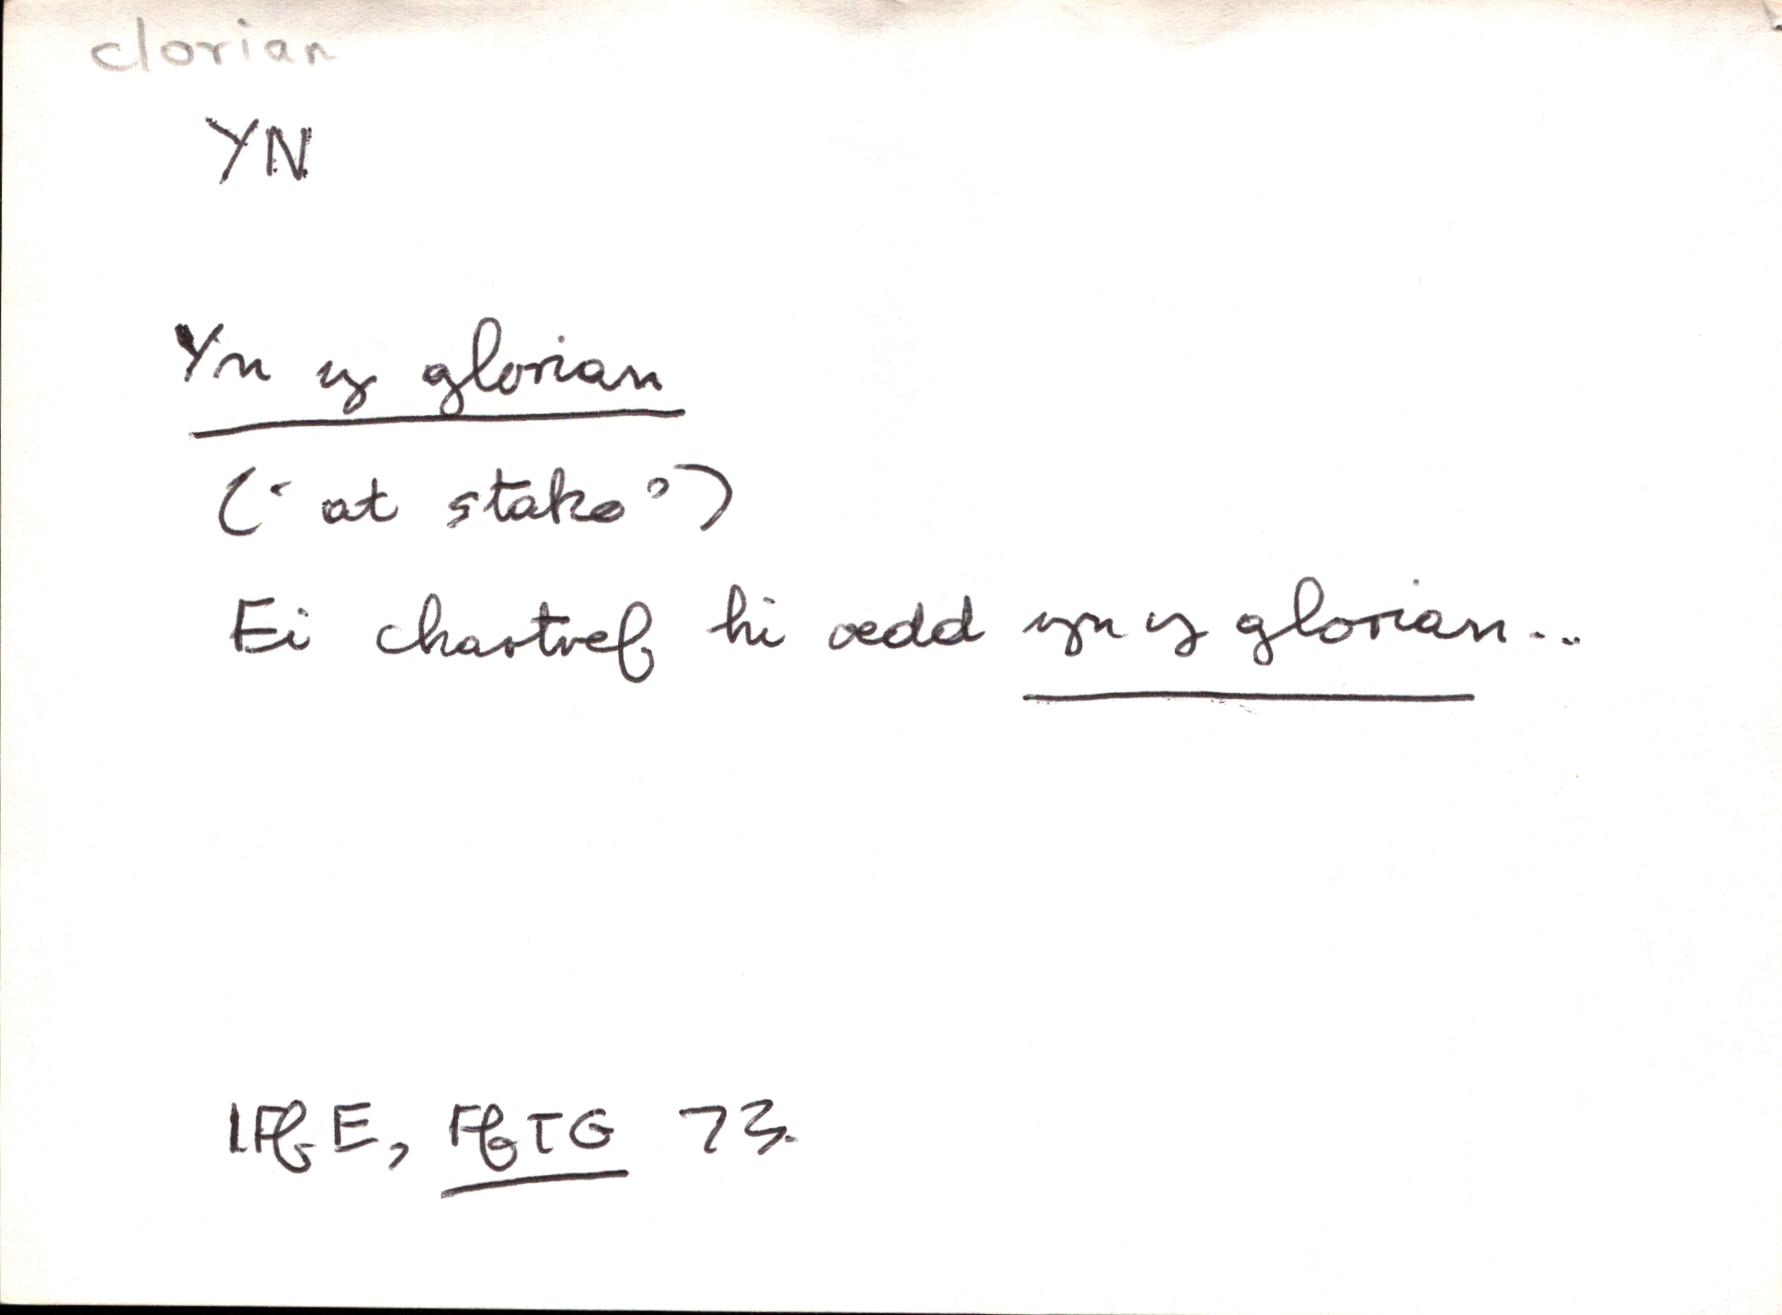 clorian
YN
Yn y glorian
('at stake')
Ei chartref hi oedd yn y glorian...
IFfE, FfTG 73.